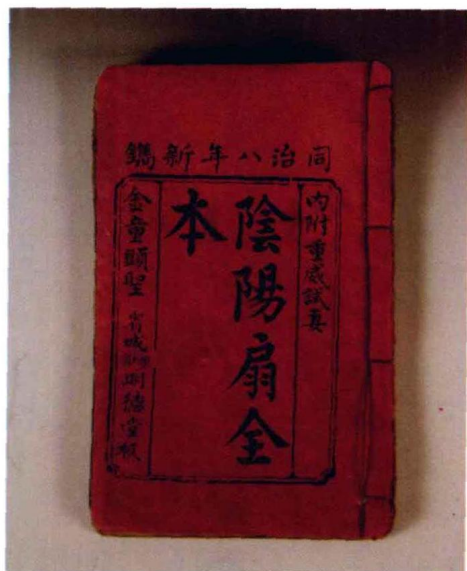 同治八年新鐫
內附重威試妻
陰陽扇全
本
金童顯聖 省城 明德堂板